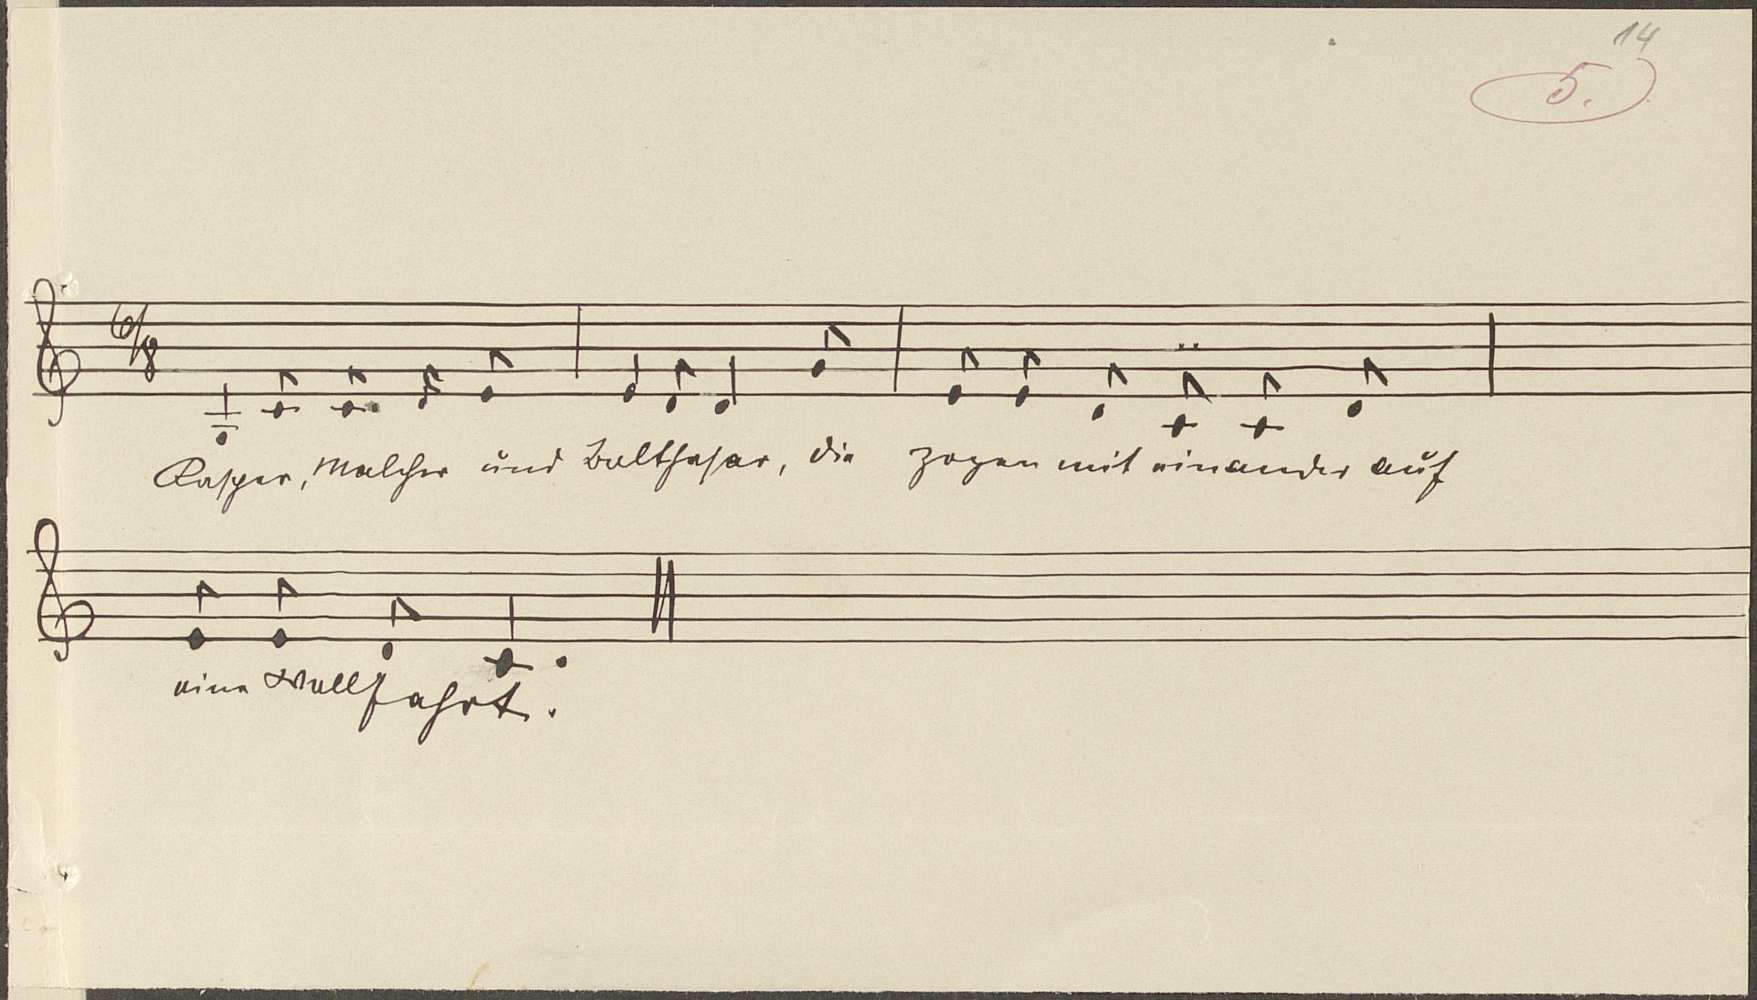 14
5.
6/8
Kasper, Malcher und Balthasar, die zogen mit einander auf
eine Wallfahrt.